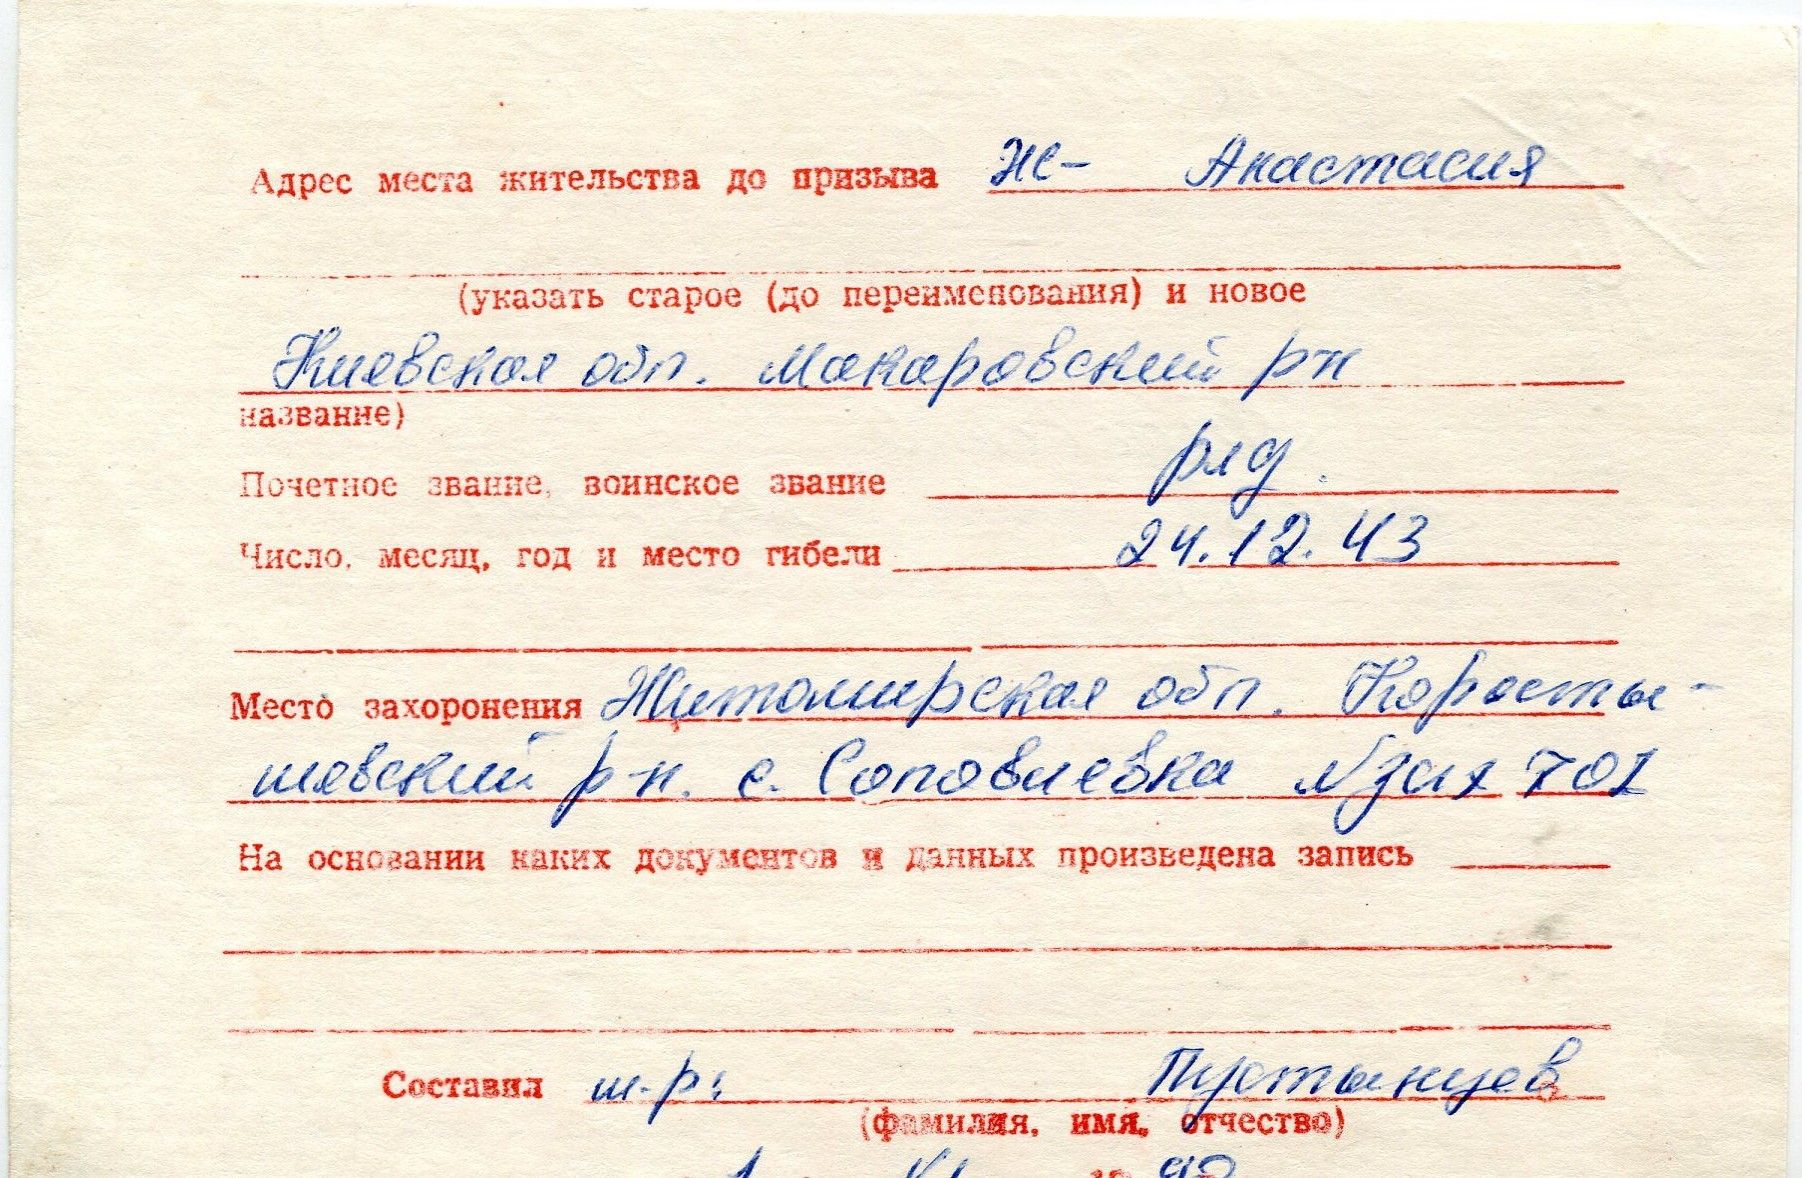 Адрес места жительства до призыва Ж- Анастасия
(указать старое (до переименования) и новое
Киевская обл. Макаровский р-н
название)
Почетное звание, воинское звание ряд.
Число, месяц, год и место гибели 24.12.43
Место захоронения Житомирская обл. Коросты-
шевский р-н. с. Соловиевка № зах 701
На основании каких документов и данных произведена запись
Составил м-р: Пустынцев
(фамилия, имя, отчество)